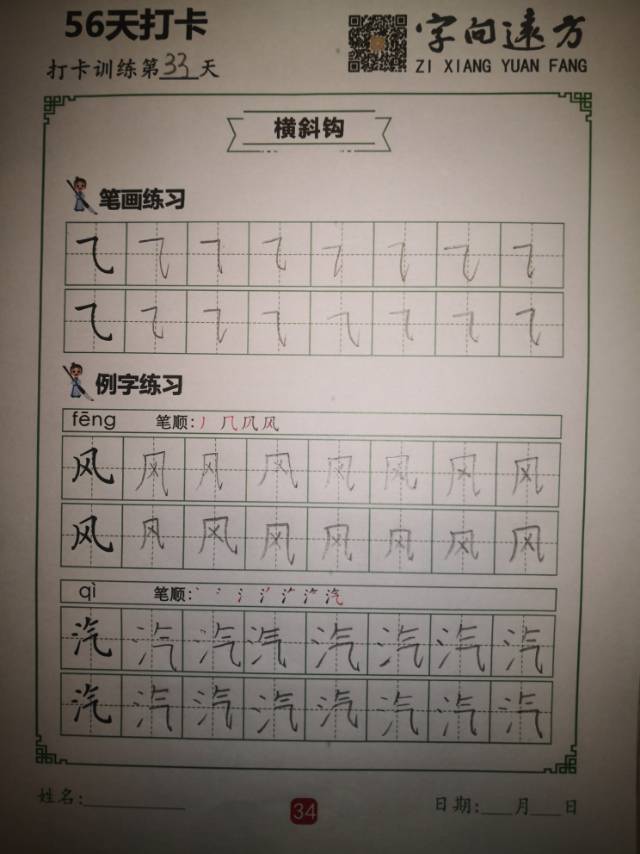 56天打卡
字向远方
打卡训练第33天
ZI XIANG YUAN FANG
横斜钩
笔画练习
⺄ ⺄ ⺄ ⺄ ⺄ ⺄ ⺄ ⺄
⺄ ⺄ ⺄ ⺄ ⺄ ⺄ ⺄ ⺄
例字练习
fēng 笔顺: 丿 几 凤 风
风 风 风 风 风 风 风 风
风 风 风 风 风 风 风 风
qì 笔顺:
汽 汽 汽 汽 汽 汽 汽 汽
汽 汽 汽 汽 汽 汽 汽 汽
姓名:
34
日期: 月 日